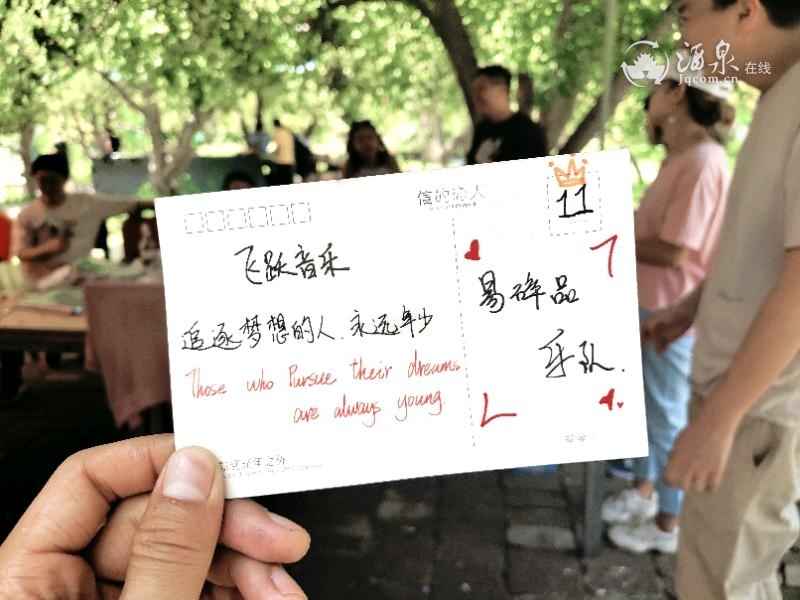 酒泉在线
Jqcom.cn
信的恋人
11
飞跃音乐
追逐梦想的人.永远年少
Those who Pursue their dreams
are always young
易碎品
乐队.